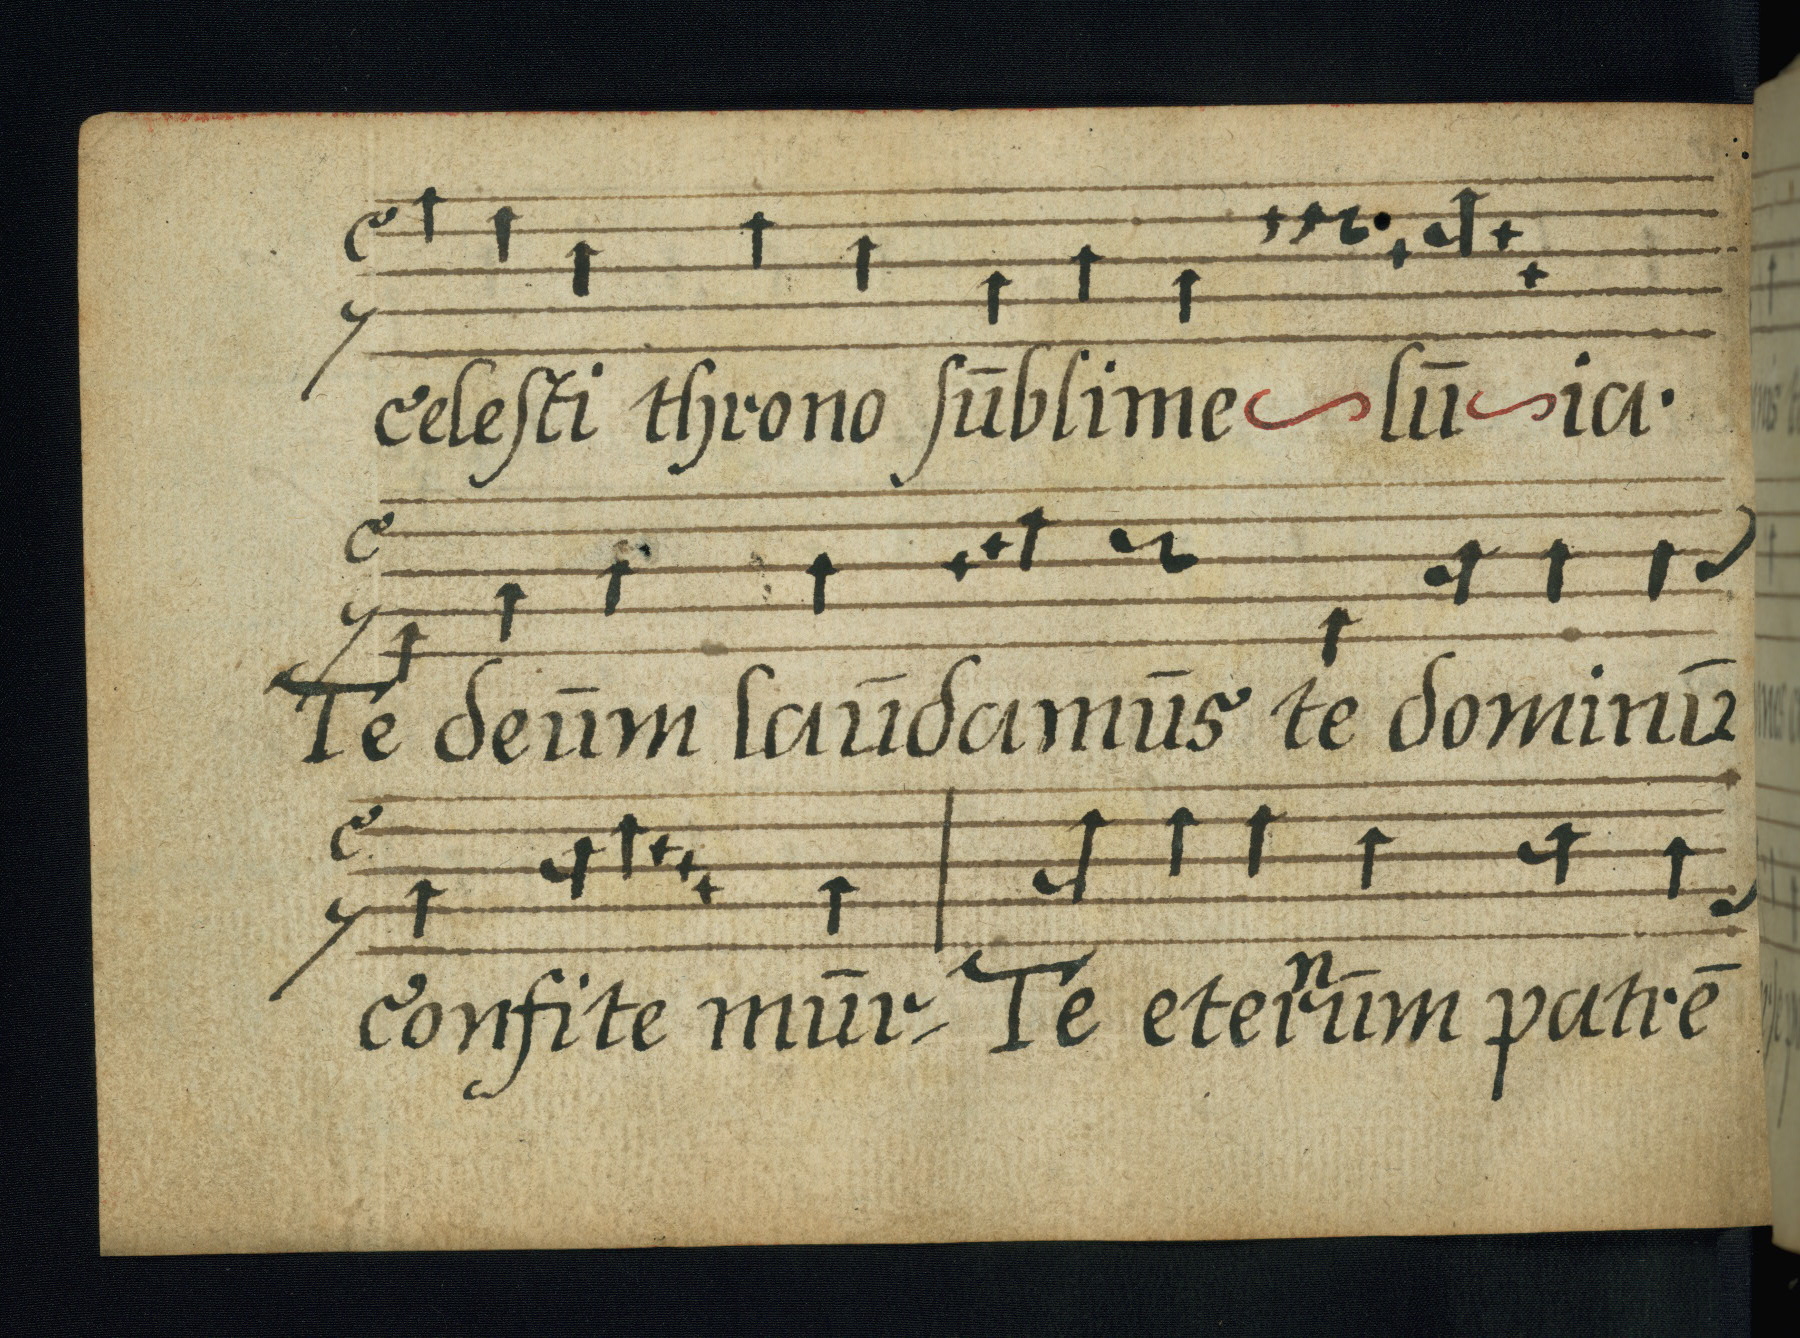 celeſti throno ſūblime lū ia.
Te deūm laūdamūs te dominū
confite mūr Te eternūm patrē